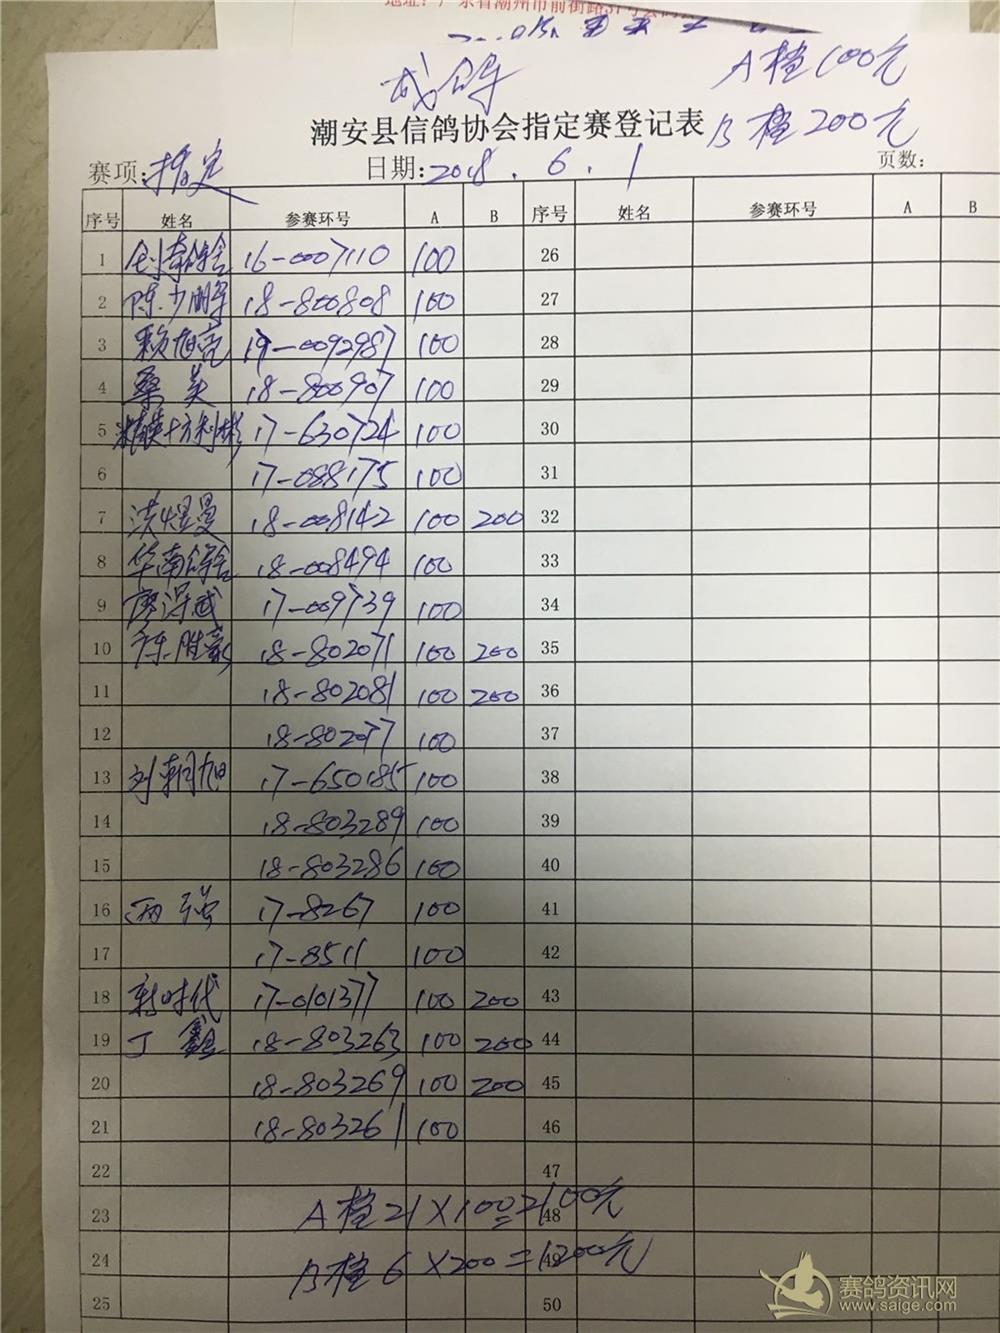 地址:广东省潮州市前街路31号
成鸽
A档100元
潮安县信鸽协会指定赛登记表
B档200元
赛项:指定 日期:2018.6.1 页数:
序号 姓名 参赛环号 A B 序号 姓名 参赛环号 A B
1 16-0007110 100 26
2 陈少鹏 18-800808 100 27
3 赖旭亮 17-0092987 100 28
4 桑美 18-800907 100 29
5 精英+方利彬 17-630724 100 30
6 17-088175 100 31
7 洪煜曼 18-008142 100 200 32
8 华南鸽舍 18-008494 100 33
9 廖泽武 17-009739 100 34
10 陈胜豪 18-802071 100 200 35
11 18-802081 100 200 36
12 18-802077 100 37
13 刘朝旭 17-650185 100 38
14 18-803289 100 39
15 18-803286 100 40
16 丙强 17-8267 100 41
17 17-8511 100 42
18 新时代 17-0101377 100 200 43
19 丁鑫 18-803263 100 200 44
20 18-803269 100 200 45
21 18-803261 100 46
22 47
23 A档21×100=2100元 48
24 B档6×200=1200元 49
25 50
赛鸽资讯网
www.saige.com